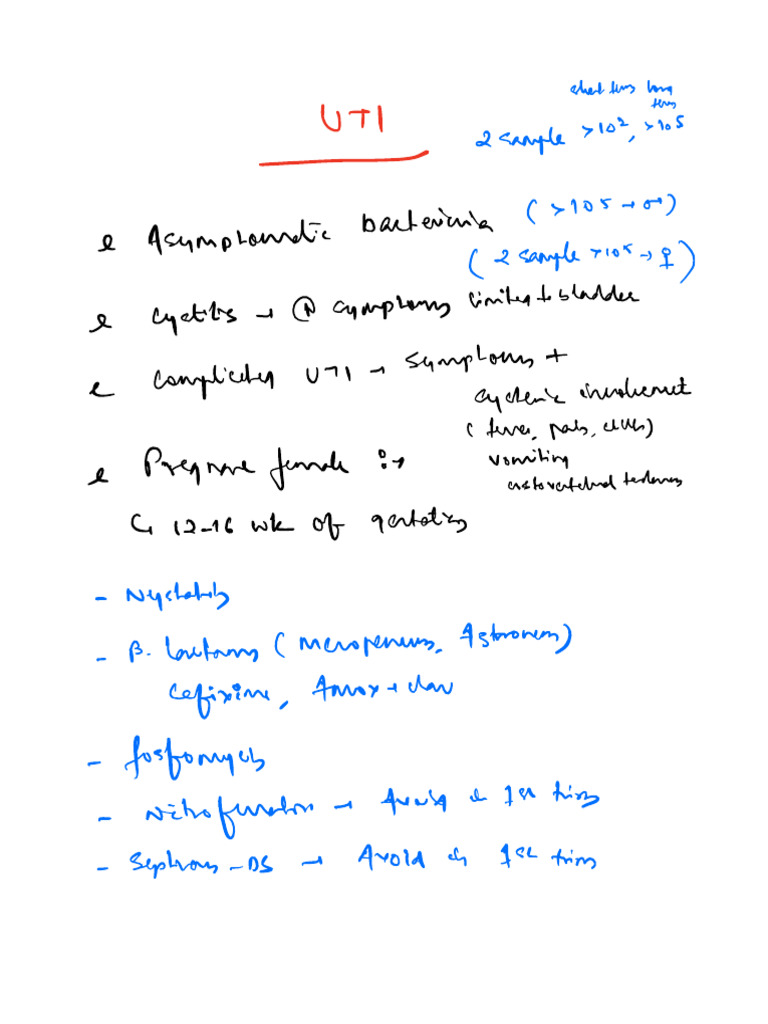 short term long
term
UTI
2 sample >10², >10⁵
Asymptomatic bacteriuria (>10⁵ → ♂)
(2 sample >10⁵ → ♀)
Cystitis → symptoms limited to bladder
Complicated UTI → Symptoms +
systemic involvement
(fever, chills)
vomiting
costovertebral tenderness
Pregnant female :→
12-16 wk of gestation
- Nystatin
- β. lactams (Meropenem, Aztreonam)
Cefixime, Amox + clav
- fosfomycin
- Nitrofurantoin → Avoid in 1st trim
- Septran-DS → Avoid in 1st trim